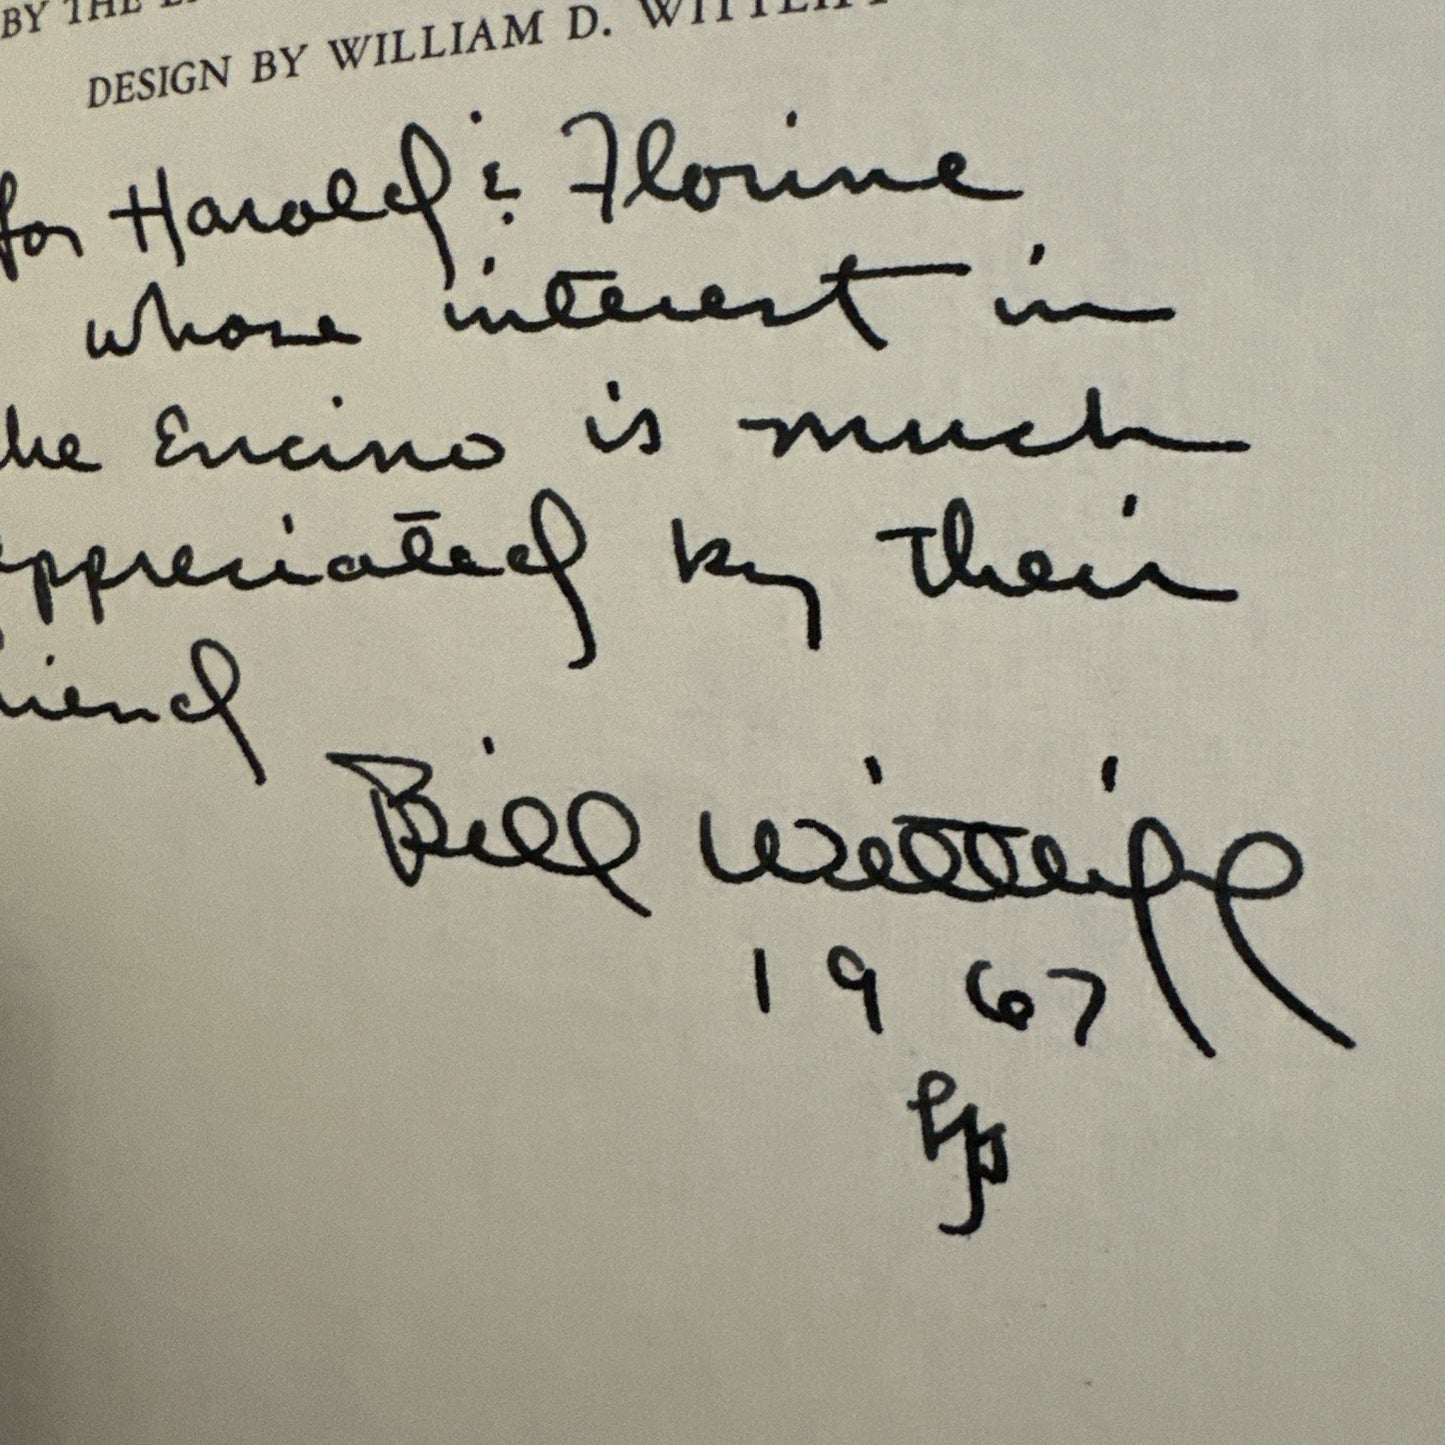 BY THE
DESIGN BY WILLIAM D. WITTLIFF
for Harold & Florine
whose interest in
he Encino is much
appreciated by their
riend
Bill Wittliff
1967